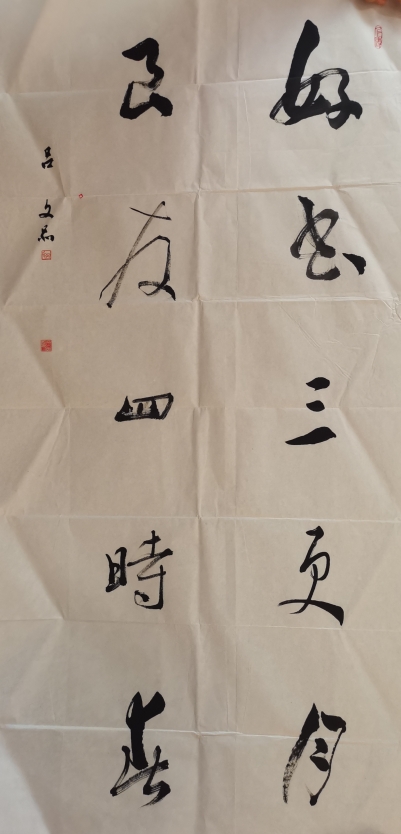 好书三更月
良友四時春
吕文